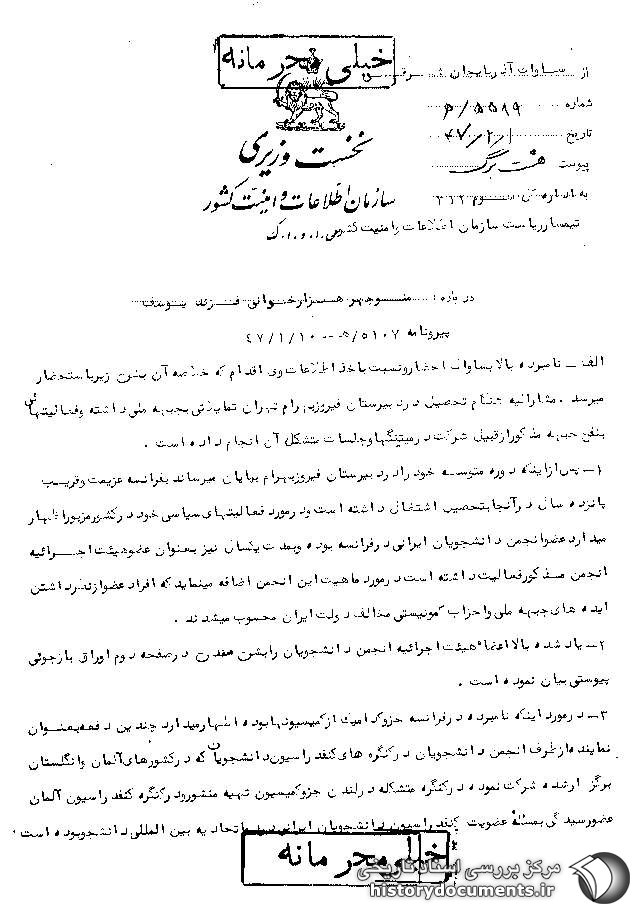 خیلی محرمانه
از ساواک آذربایجان شرقی
شماره ۵۵۱۹/م
تاریخ ۴۷/۲/۱
پیوست هشت برگ
نخست وزیری
سازمان اطلاعات و امنیت کشور
به اداره کل سوم ۳۲۲
تیمسار ریاست سازمان اطلاعات و امنیت کشور
درباره : منوچهر هزارخوانی فرزند یوسف
پیرو نامه ۵۱۰۷/ه -- ۴۷/۱/۱۰
الف - نامبرده بالا بساواک احضار و نسبت باخذ اطلاعات وی اقدام که خلاصه آن بشرح زیر باستحضار
میرسد . مشارالیه هنگام تحصیل در دبیرستان فیروز بهرام تهران تمایلاتی بجبهه ملی داشته و فعالیتهائی
بنفع جبهه مذکور از قبیل شرکت در میتینگها و جلسات متشکل آن انجام داده است .
۱- پس از اینکه دوره متوسطه خود را در دبیرستان فیروز بهرام بپایان میرساند بفرانسه عزیمت و قریب
پانزده سال در آنجا بتحصیل اشتغال داشته است و در مورد فعالیتهای سیاسی خود در کشور مزبور اظهار
میدارد عضو انجمن دانشجویان ایرانی در فرانسه بوده و بمدت یکسال نیز بعنوان عضو هیئت اجرائیه
انجمن مذکور فعالیت داشته است در مورد ماهیت این انجمن اضافه مینماید که افراد عضو از نظر داشتن
ایده های جبهه ملی و احزاب کمونیستی مخالف دولت ایران محسوب میشدند .
۲- یاد شده بالا اعضاء هیئت اجرائیه انجمن دانشجویان را بشرح مندرج در صفحه دوم اوراق بازجوئی
پیوستی بیان نموده است .
۳- در مورد اینکه نامبرده در فرانسه جزو کدامیک از کمیسیونها بوده اظهار میدارد چندین دفعه بعنوان
نماینده از طرف انجمن دانشجویان در کنگره های کنفدراسیون دانشجویان که در کشورهای آلمان و انگلستان
برگزار شده شرکت نموده در کنگره متشکله در لندن جزو کمیسیون تهیه منشور و در کنگره کنفدراسیون آلمان
عضو رسیدگی بمسئله عضویت کنفدراسیون دانشجویان ایرانی در اتحادیه بین المللی دانشجو بوده است .
خیلی محرمانه
مرکز بررسی اسناد تاریخی
historydocuments.ir